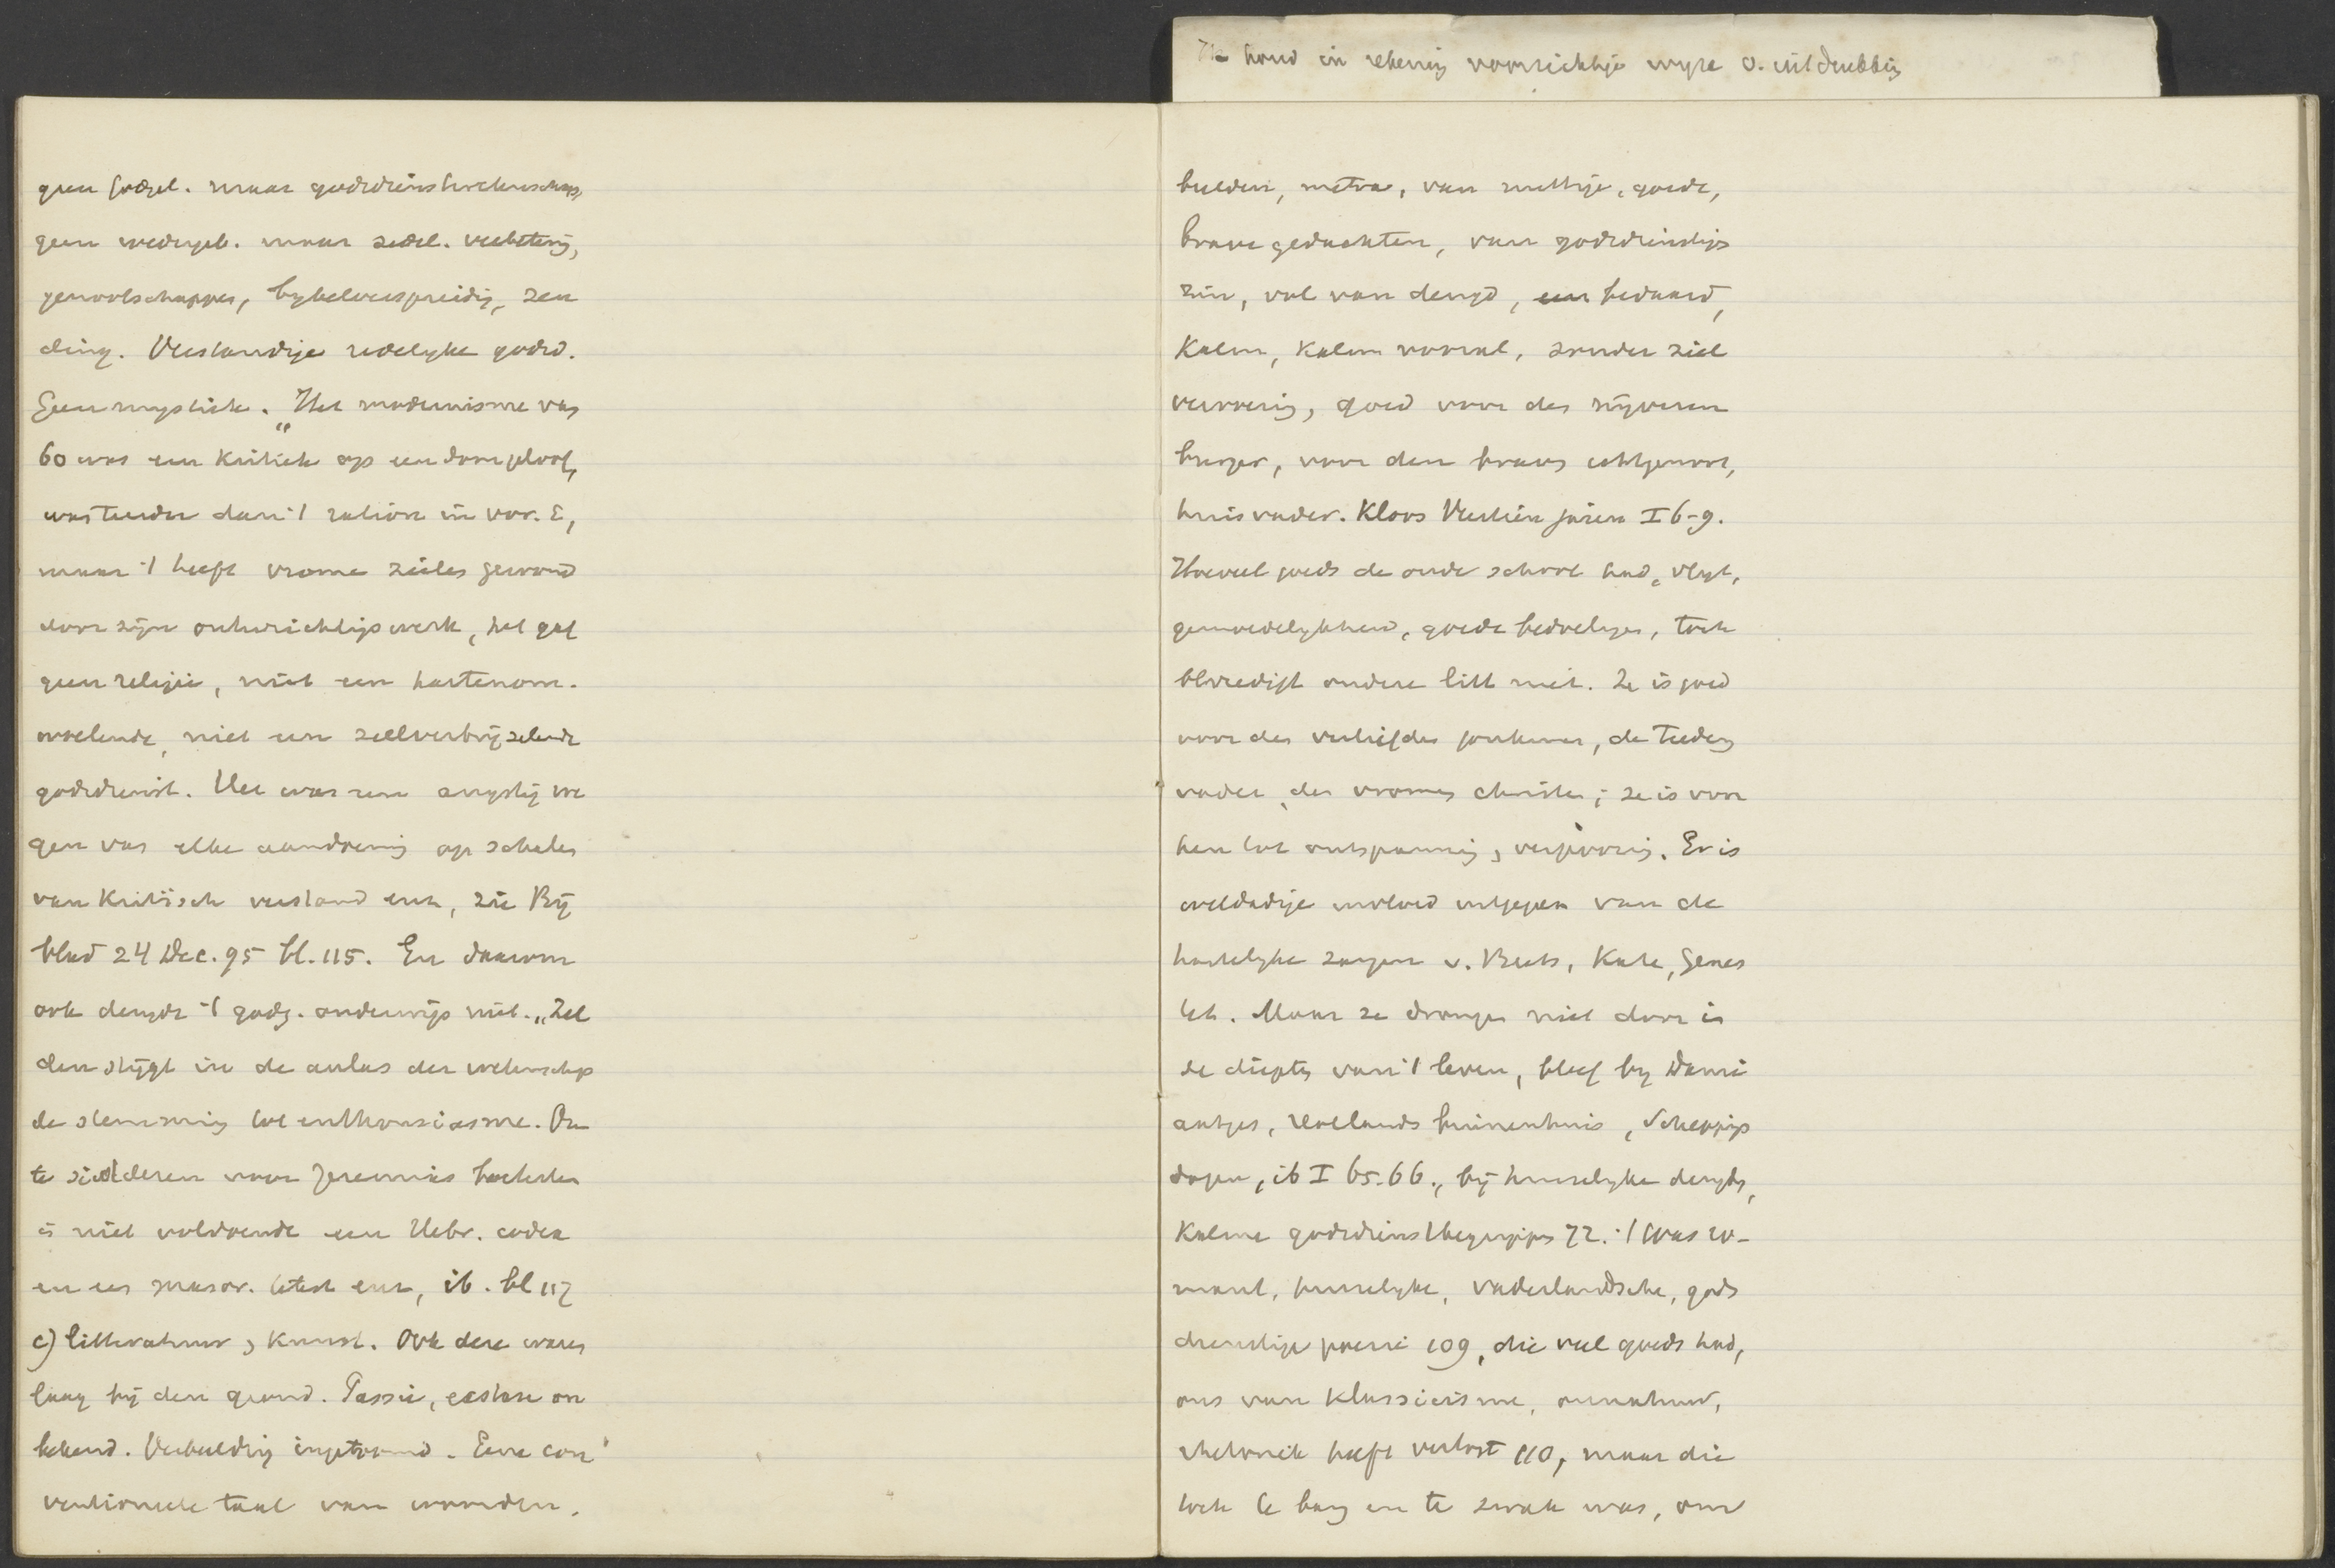 Ik houd in rekening voorzichtige wyze v. uitdrukking
geen godgel. maar godsdienstwetenschap,
geen wedergeb. maar zedel. verbetering,
genootschappen, bybelverspreiding, zen
ding. Verstandige redelyke godsd.
Geen mystiek. „Het modernisme van
60 was een kritiek op een doorgeloof,
was teerder dan 't ration. in vor. E,
maar 't heeft vrome zielen gewond
door zijn ontwrichtingswerk, het gaf
geen religie, niet een hartenom-
woelende, niet een zeelverbrijzelende
godsdienst. Het was een angstig we
gen van elke aandoening op schalen
van kritisch verstand enz, zie Bij
blad 24 Dec. 95 bl. 115. En daarom
ook deugde 't godsd. onderwijs niet. „Zel
den stijgt in de aulas der wetenschap
de stemming tot enthousiasme. Om
te sidderen voor Jeremias boeken
is niet voldoende een Hebr. codex
en een masor. tekst enz, ib. bl 117
c) litteratuur, kunst. Ook deze waren
laag bij den grond. Passie, extase on
bekend. Verbeelding ingetoomd. Eene con
ventioneele taal van woorden,
beelden, metra, van nuttige, goede,
brave gedachten, van godsdienstige
zin, vol van deugd, bedaard,
kalm, kalm vooral, zonder ziel
vervoering, goed voor den nijveren
burger, voor den braven echtgenoot,
huisvader. Kloos Veertien jaren I 6-9.
Hoeveel goeds de oude school had, vlyt,
gemoedelykheid, goede bedoelingen, toch
bevredigt andere litt niet. Ze is goed
voor den verliefden jonkman, de teedere
vader, den vromen christen; ze is voor
hen tot ontspanning, verpoozing. Er is
weldadige invloed uitgegaan van de
hartelyke zangen v. Beets, Kate, Genes
tet. Maar ze drongen niet door in
de diepten van 't leven, bleef by Dami
aatjes, Hollands binnenhuis, Schepping
dagen, ib I 65.66., bij huiselyke deugden,
kalme godsdienstbegrippen 72. 't Was ro-
mant, huiselyke, vaderlandsche, gods
dienstige poezie 109, die veel goeds had,
ons van klassicisme, onnatuur,
rhetoriek heeft verlost 110, maar die
toch te bang en te zwak was, om